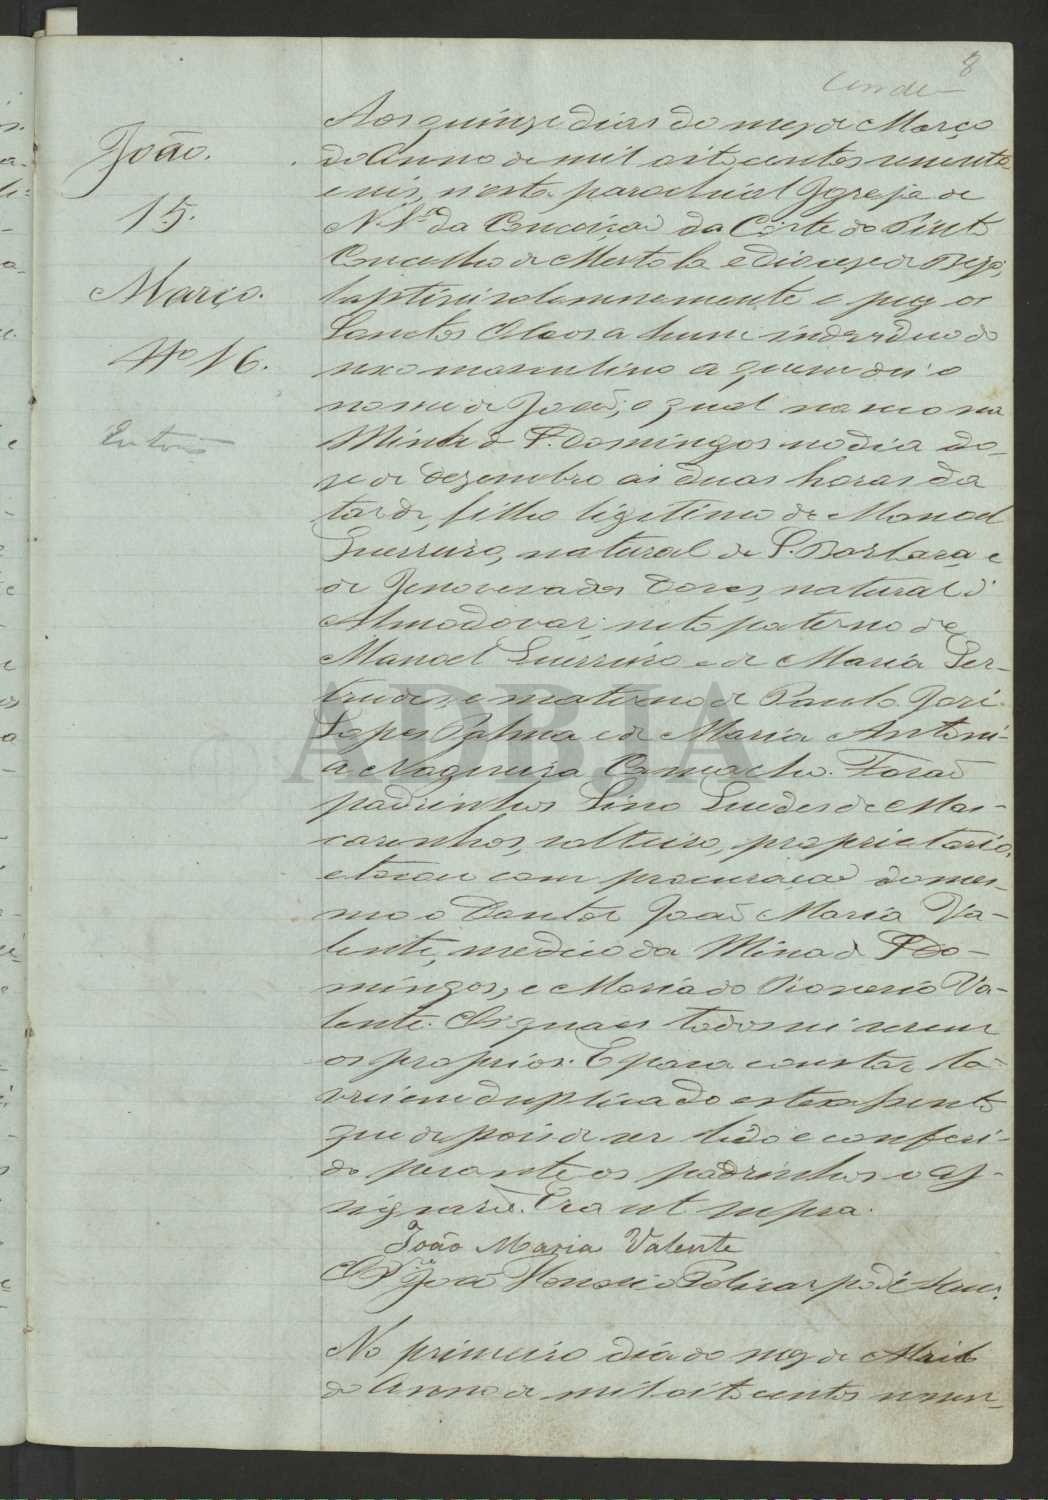 8
Conde
João.
15.
Março.
Nº 16.
Aos quinze dias do mez de Março
do Anno de mil oitocentos noventa
e seis, n'esta parochial Igreja de
N. Sª da Conceição da Côrte do Pinto
Concelho de Mertola e diocese de Beja,
baptisei solemnemente e puz os
Sanctos Oleos a hum individuo do
sexo masculino a quem dei o
nome de João; o qual nasceo na
Mina de S. Domingos no dia do-
ze de Dezembro ás duas horas da
tarde, filho ligitimo de Manoel
Guerreiro, natural de S. Barbara e
de Genoveva das Dores, natural d'
Almodovar; neto paterno de
Manoel Guerreiro e de Maria Ger-
trudes, e materno de Paulo José
Lopes Palma e de Maria Antoni-
a Nogueira Camacho. Forão
padrinhos Lino Guedes de Mas-
carinhos, solteiro, proprietario,
e tocou com procuração do mes-
mo o Doutor João Maria Va-
lente, medico da Mina de S. Do-
mingos, e Maria do Va-
lente. Os quaes todos sei serem
os proprios. E para constar la-
vrei em duplicado este assento
que depois de ser lido e conferi-
do perante os padrinhos o as-
signarão. Era ut supra.
João Maria Valente
O P. José
No primeiro dia do mez de Abril
do Anno de mil oitocentos noven-
ADBJA